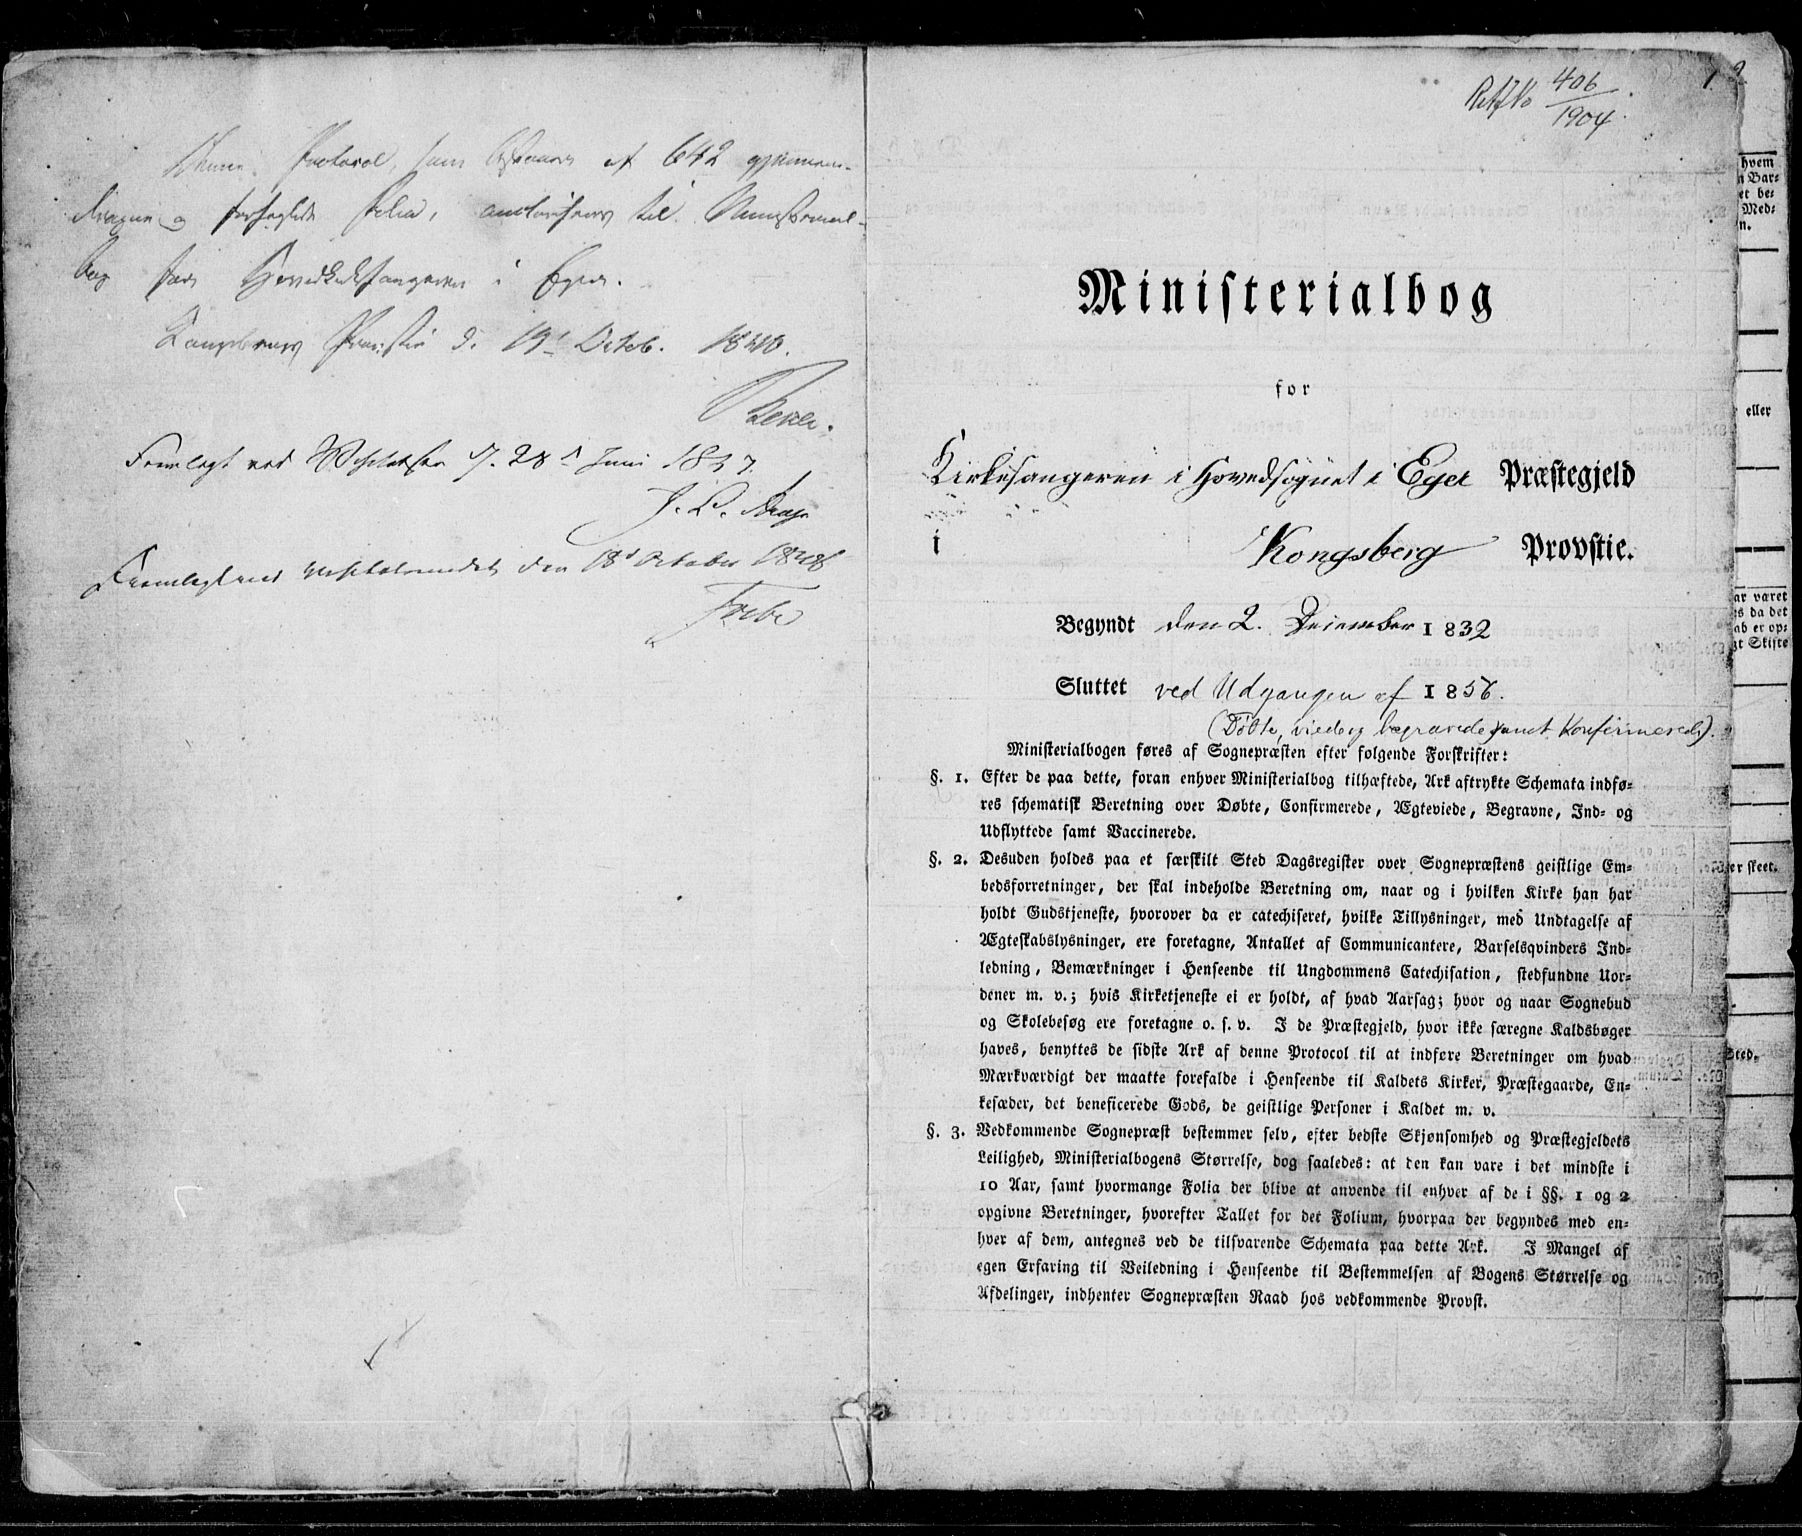 Denne Protocol, som bestaaer af 642 gjennem-
dragne og forseglede Folia, authoriseres til Ministerial-
bog for Hovedkirkesangeren i Eger.
Kongsbergs Provstie d. 19 Octob. 18
Fremlagt ved Visitatsen d. 28 Juni 1847.
Fremlagt ved Visitatsmødet den 18 October 1848
406
1904
1
Ministerialbog
for
Kirkesangeren i Hovedsognet i Eger Præstegjeld
i Kongsberg Provstie.
Begyndt den 2. Deiember 1832
Sluttet ved Udgangen af 1856.
(Døbte, viede og begravede samt Konfirmerede).
Ministerialbogen føres af Sognepræsten efter følgende Forskrifter:
§. 1. Efter de paa dette, foran enhver Ministerialbog tilhæftede, Ark aftrykte Schemata indfø-
res schematisk Beretning over Døbte, Confirmerede, Ægteviede, Begravne, Ind- og
Udflyttede samt Vaccinerede.
§. 2. Desuden holdes paa et særskilt Sted Dagsregister over Sognepræstens geistlige Em-
bedsforretninger, der skal indeholde Beretning om, naar og i hvilken Kirke han har
holdt Gudstjeneste, hvorover da er catechiseret, hvilke Tillysninger, med Undtagelse af
Ægteskabslysninger, ere foretagne, Antallet af Communicantere, Barselqvinders Ind-
ledning, Bemærkninger i Henseende til Ungdommens Catechisation, stedfundne Uor-
dener m. v.; hvis Kirketjeneste ei er holdt, af hvad Aarsag; hvor og naar Sognebud
og Skolebesøg ere foretagne o. s. v. I de Præstegjeld, hvor ikke særegne Kaldsbøger
haves, benyttes de sidste Ark af denne Protocol til at indføre Beretninger om hvad
Mærkværdigt der maatte forefalde i Henseende til Kaldets Kirker, Præstegaarde, En-
kesæder, det beneficerede Gods, de geistlige Personer i Kaldet m. v.
§. 3. Vedkommende Sognepræst bestemmer selv, efter bedste Skjønsomhed og Præstegjeldets
Leilighed, Ministerialbogens Størrelse, dog saaledes: at den kan vare i det mindste i
10 Aar, samt hvormange Folia der blive at anvende til enhver af de i §§. 1 og 2
opgivne Beretninger, hvorefter Tallet for det Folium, hvorpaa der begyndes med en-
hver af dem, antegnes ved de tilsvarende Schemata paa dette Ark. I Mangel af
egen Erfaring til Veiledning i Henseende til Bestemmelsen af Bogens Størrelse og
Afdelinger, indhenter Sognepræsten Raad hos vedkommende Provst.
2
hvem
n Bar-
et be-
Med-
n.
eller
ar været
es da det
ab er op-
gt Skifte
er skeet.
Sted.